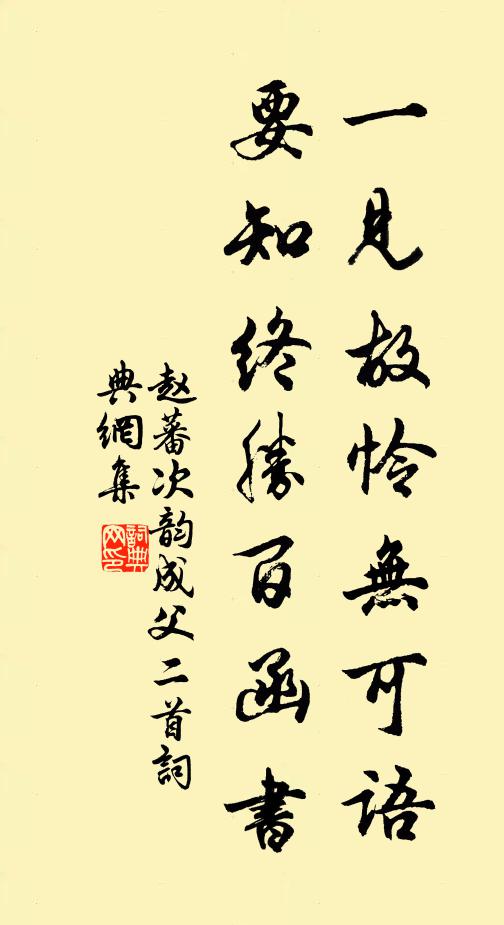 一見故怜無可語
要知終勝百函書
赵蕃次韵成父二首詞
典網集
詞典
网印